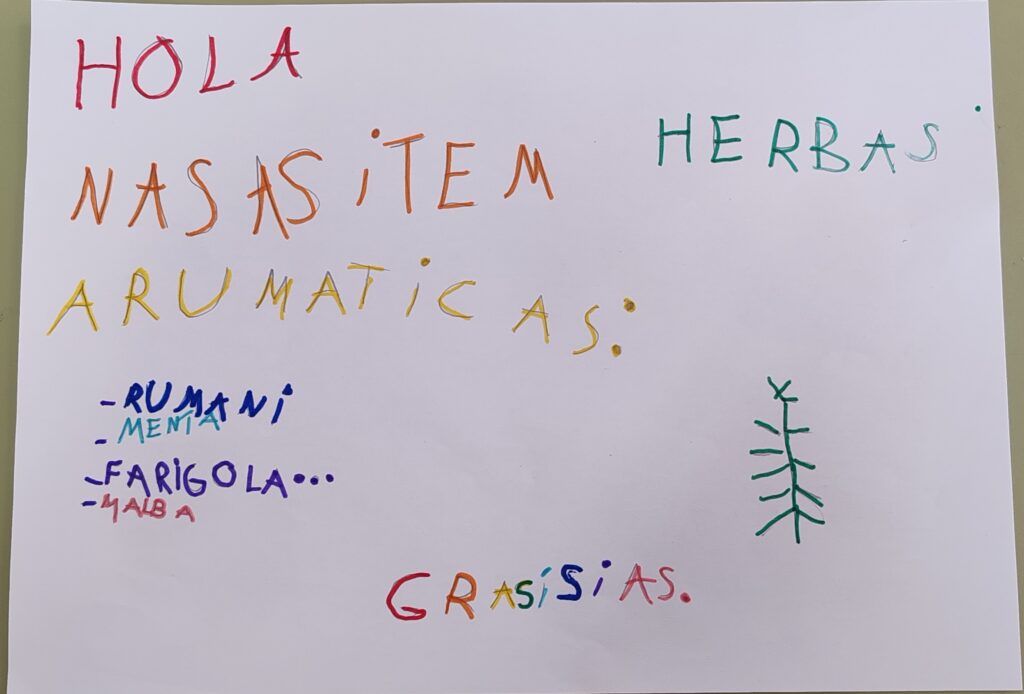 HOLA
NASASiTEM HERBAS
ARUMATiCAS:
-RUMANi
-MENTA
-FARiGOLA...
-MALBA
GRASiSiAS.